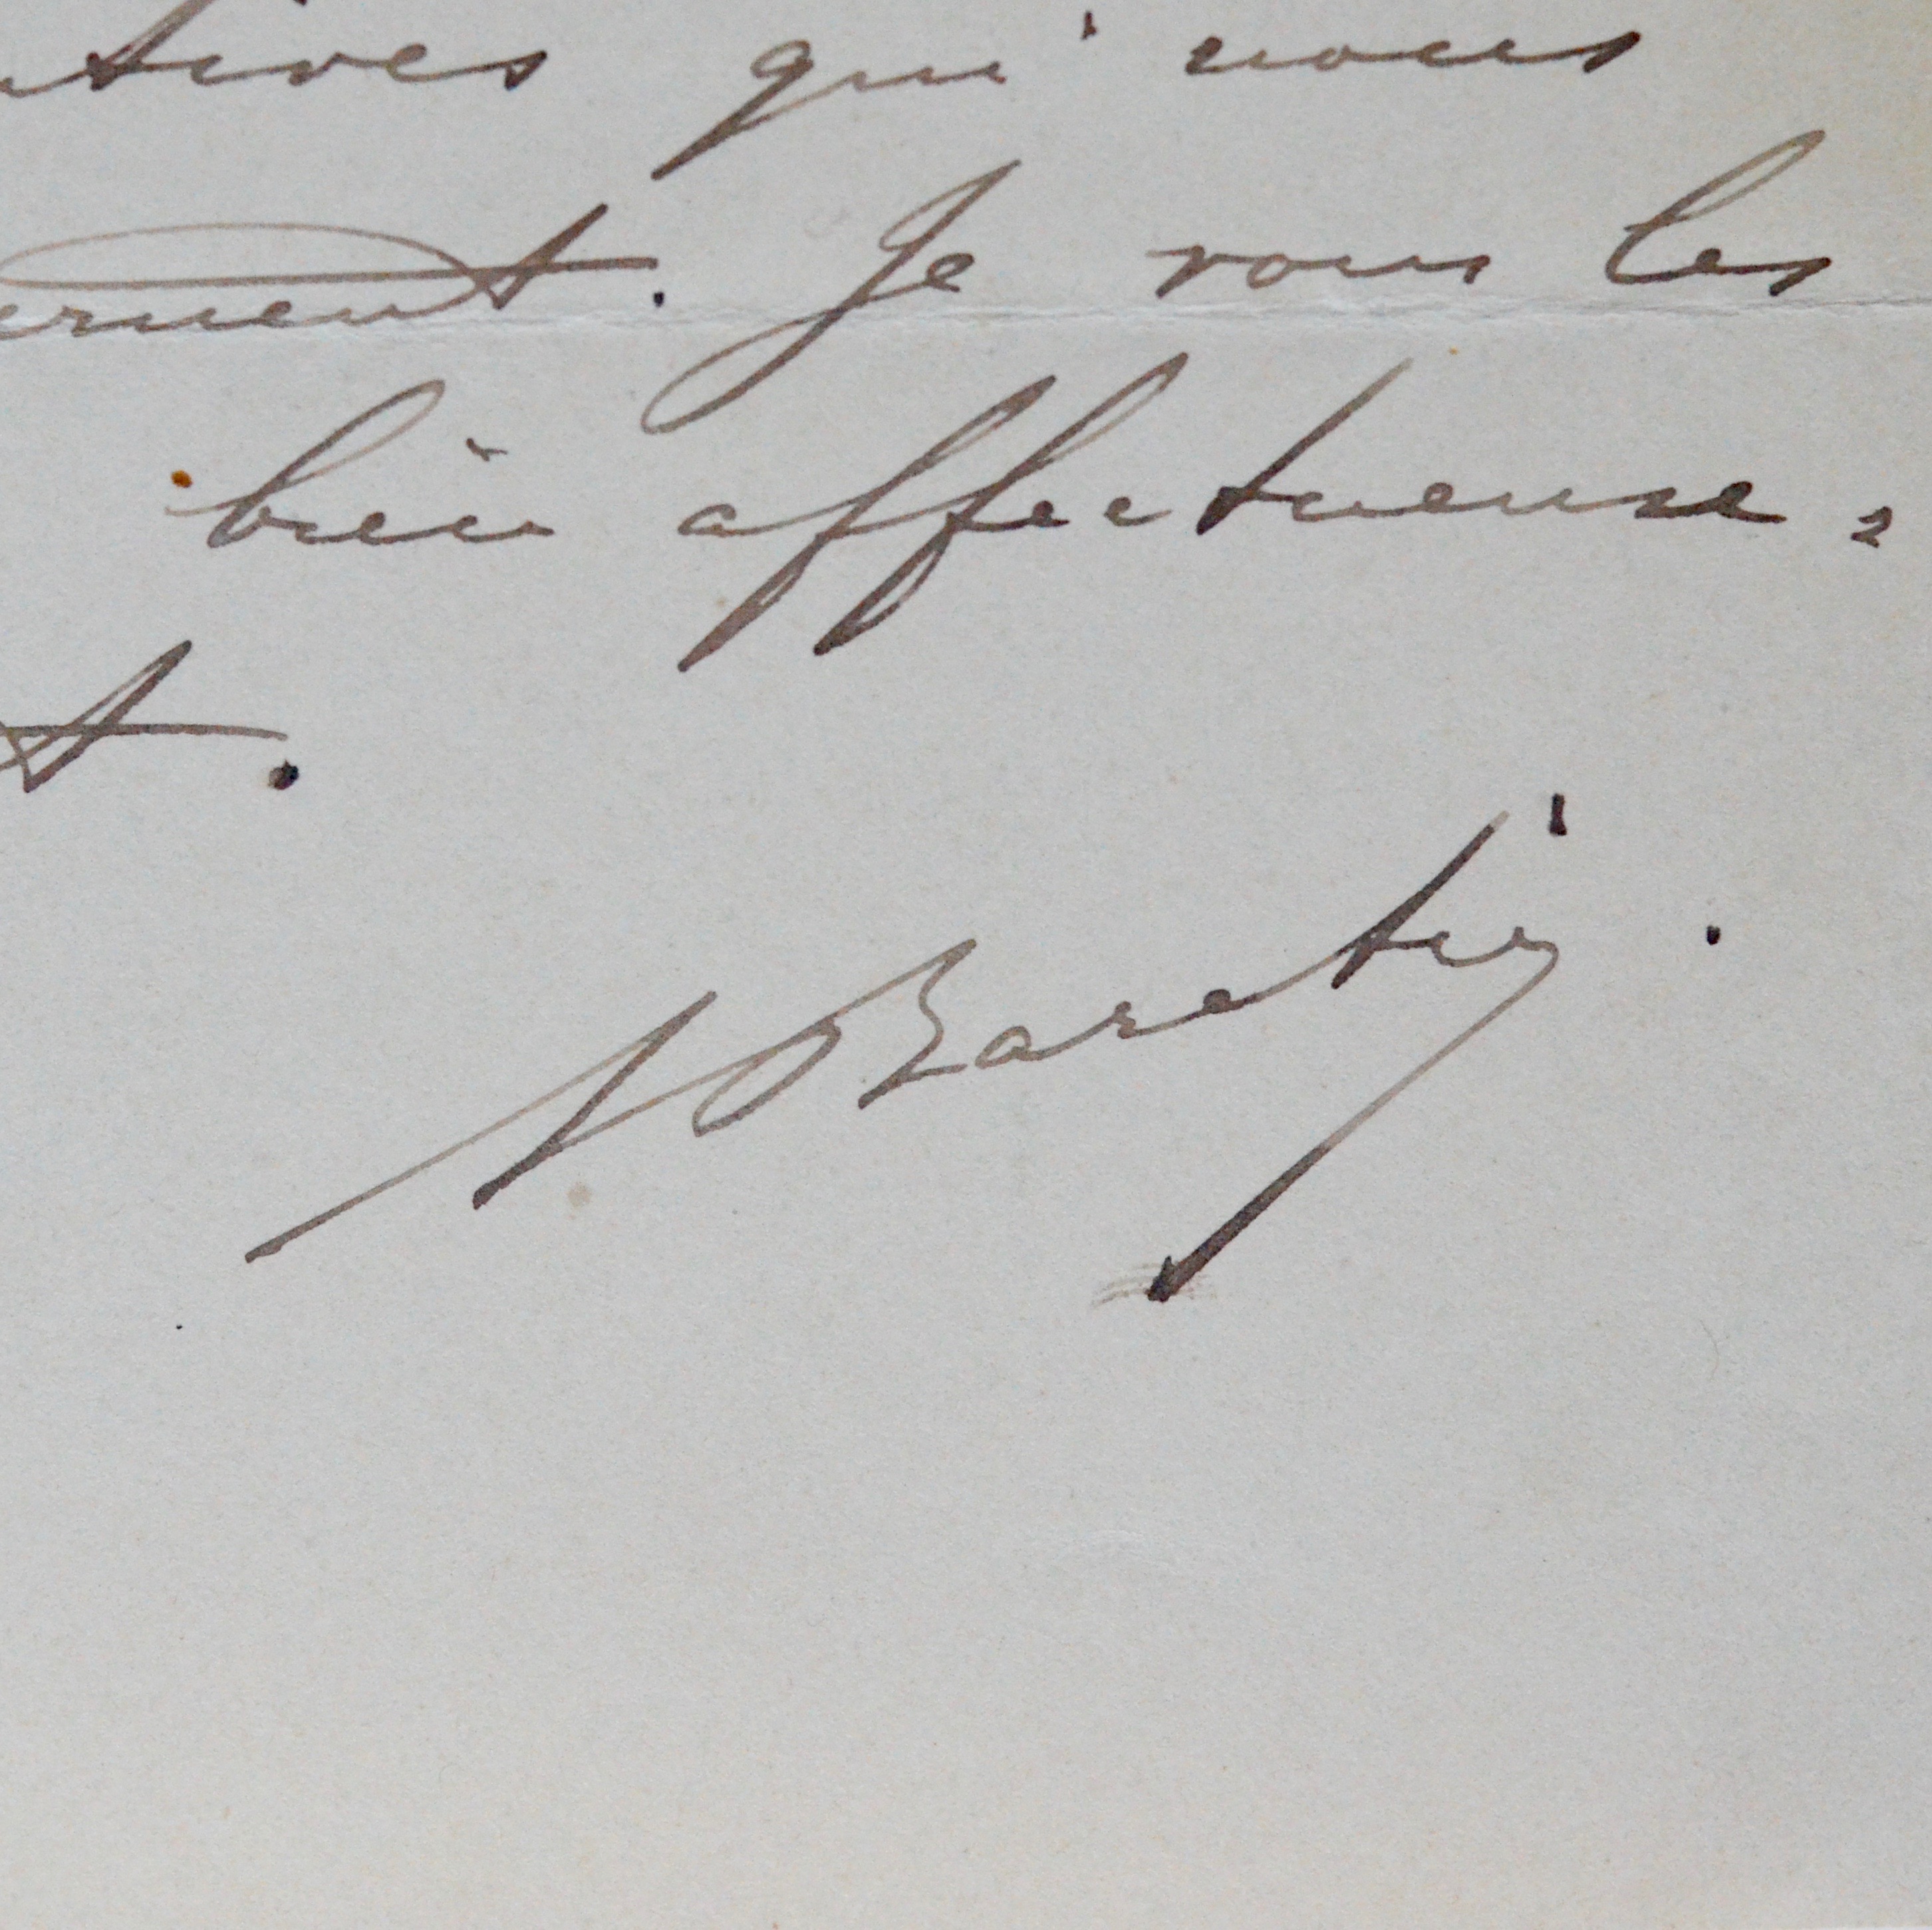 tives qui nous
ement. Je vous les
bien affectueuse=
t.
A Baréty.